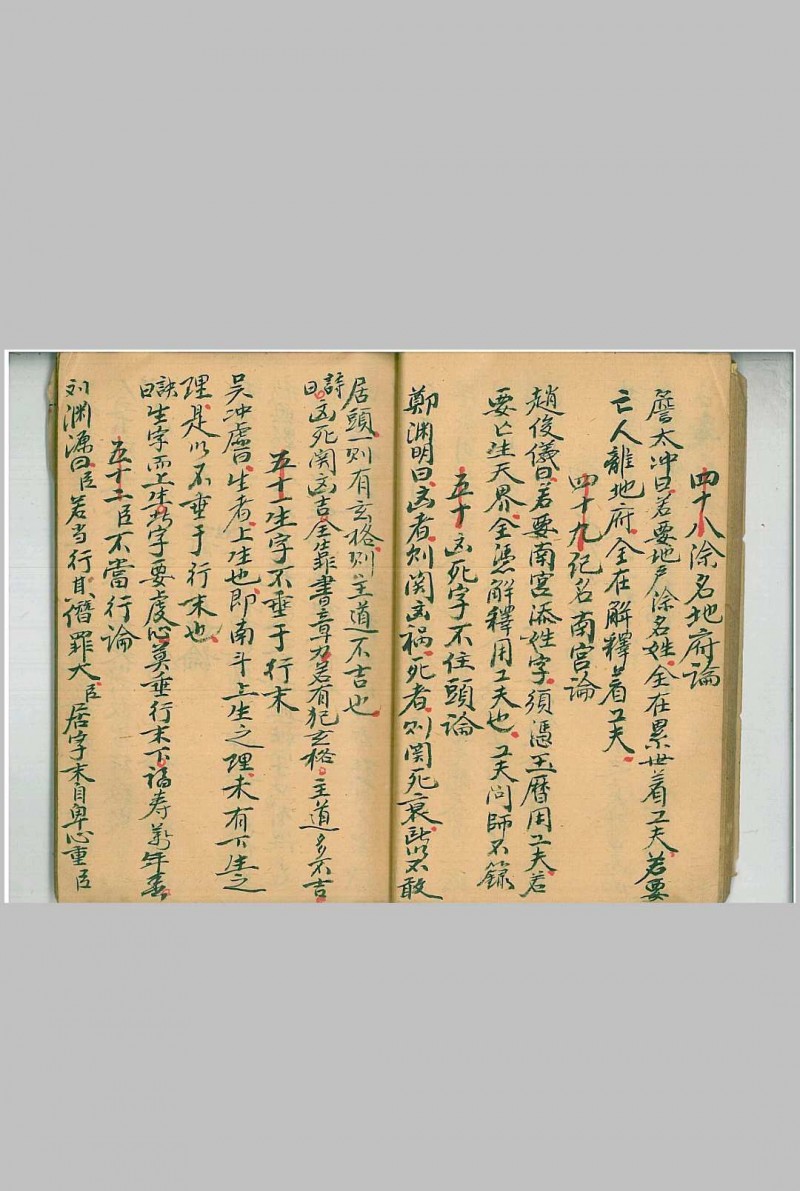 四十八涂名地府論
詹太冲曰若要地户涂名姓全在累世着工夫若要
亡人離地府全在解釋着工夫
四十九纪名南宫論
趙俊儀曰若要南宫添姓字須憑玉曆用工夫若
要亡生天界全憑解釋用工夫也工夫问師不録
五十凶死字不住頭論
鄭渊明曰凶者则関凶祸死者则関死衰此以不敢
居頭一则有玄格则主道不吉也
詩曰凶死関凶吉全靠書章力若有犯玄格主道多不吉
五十一生字不垂于行末
吴冲虚曰生者上生也即南斗上生之理未有下生之
理是以不垂于行末也
訣曰生字而上生此字要虔心莫垂行末下福寿萬年春
五十二臣不當行論
刘渊源曰臣若当行其僭罪大臣居字末自卑心重臣